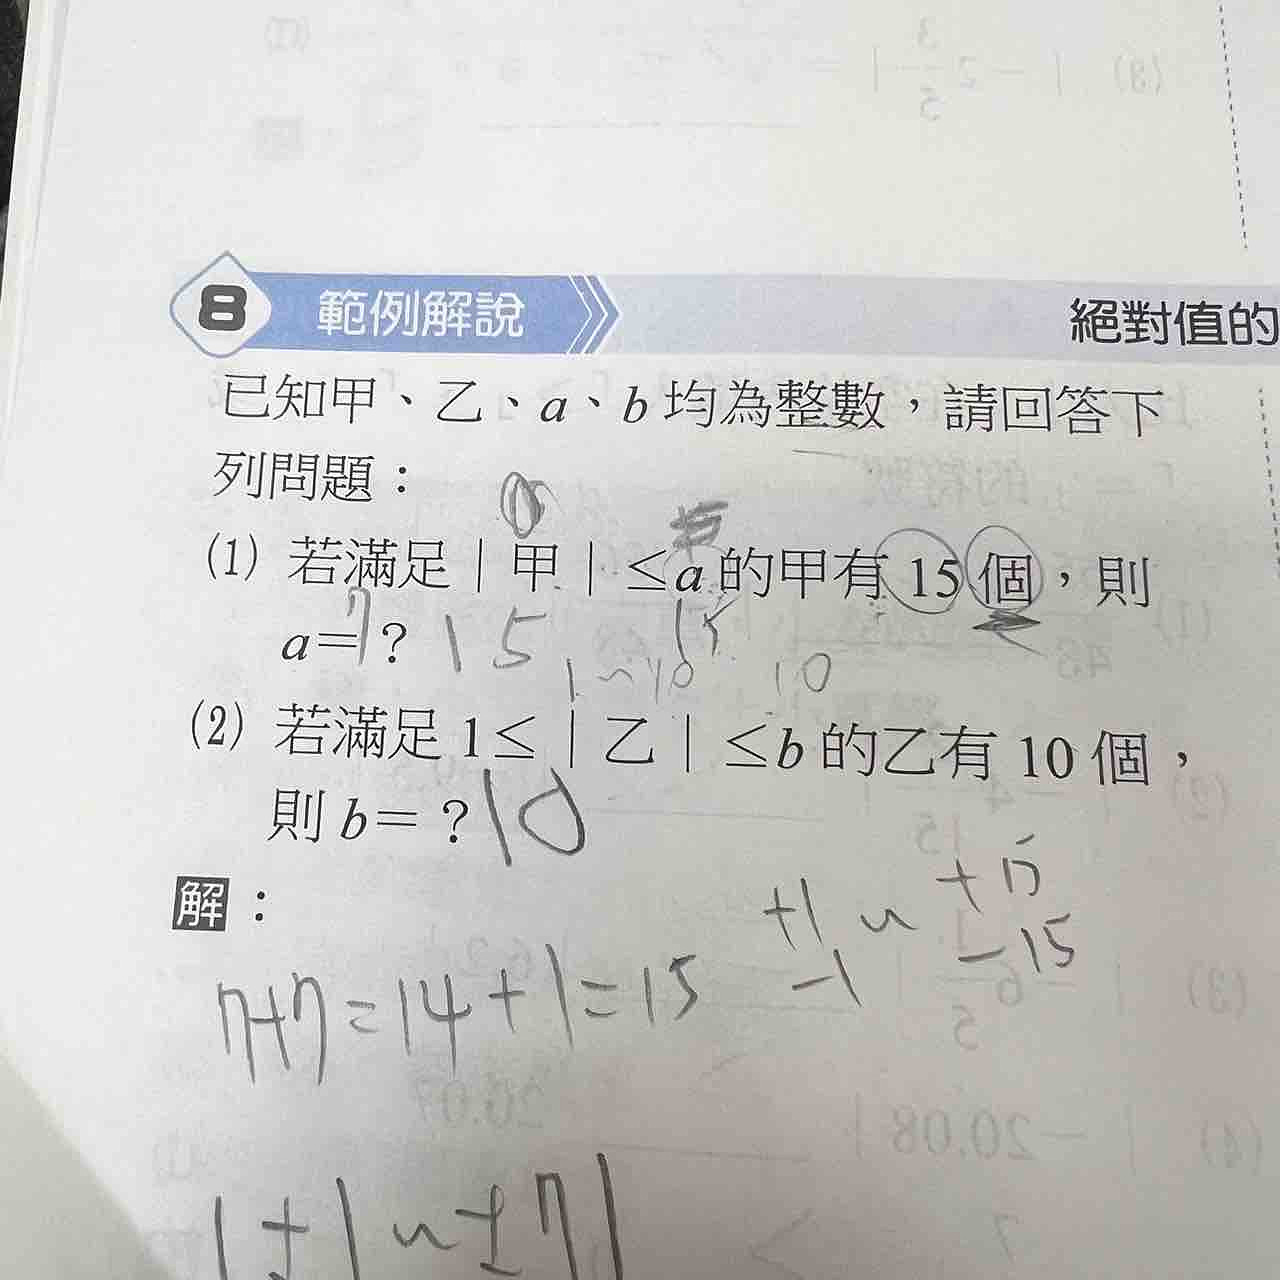 8 範例解說 絕對值的
已知甲、乙、a、b 均為整數，請回答下
列問題：
(1) 若滿足｜甲｜≤a 的甲有 15 個，則
a=？
7 15 15
1~10 10
(2) 若滿足 1≤｜乙｜≤b 的乙有 10 個，
則 b=？ 10
解：
+1 ~ +15
-1 -15
7+7=14+1=15
|±1~±7|